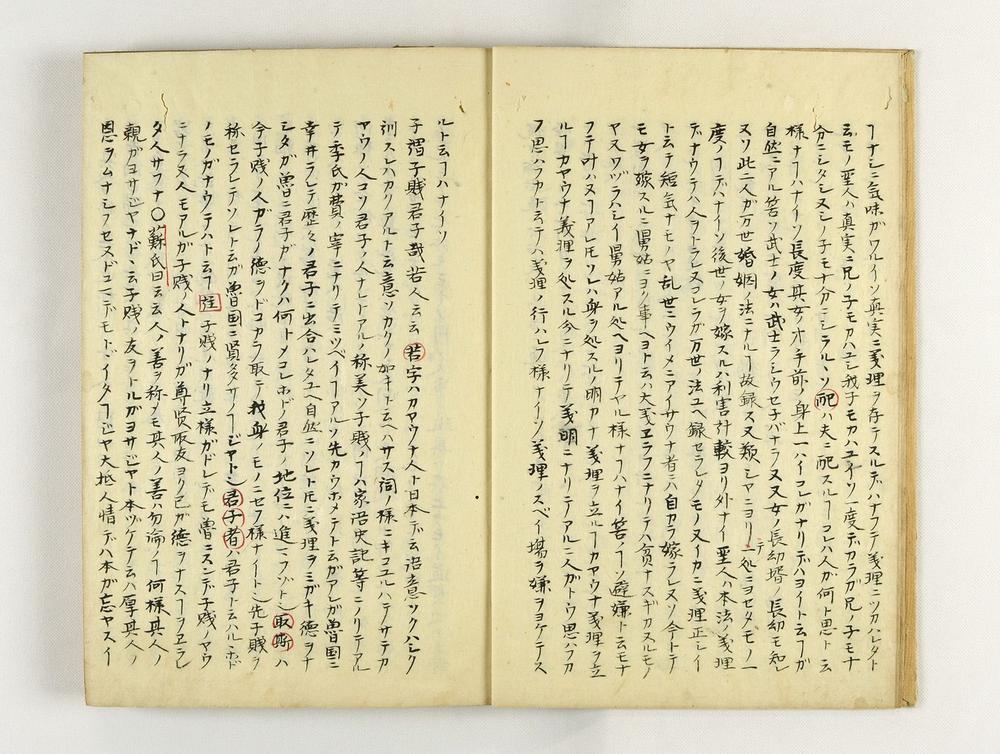 フナシニ気味ガワルイソ真実ニ義理ヲ存テスルデハナフテ義理ニツカハレタト
云モノ聖人ハ真実ニ兄ノ子モカハユシ我子モカハユイソ一度デカラガ兄ノ子モナ
分ニシタシ又シノ子モナ分ニシラルヽソ配ハ夫ニ配スルフコレハ人ガ何ト思トモ
様ナフハナイソ長度其女ノ才手前ノ身上一ハイコレガナリデハヨイト云フガ
自然ニアル筈ソ武士ノ女ハ武士ラシウセチバナラヌ又女ノ長幼壻ノ長幼モ知レ
又ソ此二人ガ万世婚姻ノ法ニナルフ故録ス又叛シヤニヨリ一処ニヨセタモノ一
度ノフデハナイソ後世ノ女ヲ嫁スルハ利害計較ヨリ外ナイ聖人ハ本法ノ義理
デナウテハ人ヲトラレヌコレラガ万世ノ法ユヘ録セラレタモノ又イカニ義理正シイ
トムテ短気ナモノヤ乱世ニウイメニアイサウナ者ニハ自カラ嫁ラレヌソ今トテ
モ女ヲ嫁スルニ舅姑ニヨク事ヘヨト云ハ大義エラフニナリテハ貧ナスギカスルモノ
ヤ又ワヅラハシイ舅姑アル処ヘヨリテヤル様ナフハナイ筈ノフソ避嫌ト云モナ
フテ叶ハヌフアレモソレハ身ヲ処スルノ明カナ義理ヲ立ルフカヤウナ義理ヲ立
ルフカヤウナ義理ヲ処スル今ニナリテ義明ニナリテアルニ人ガトウ思ハフカ
フ思ハフカト云テハ義理ノ行ハレフ様ナイソ義理ノスベイ場ヲ嫌ヲヨケテス
ルト云フハナイソ
子謂子賤君子哉若人云云若字ハカヤウナ人ト日本デ云語意ソクハシク
訓スレハカクアルト云意ソカクノ如キト云ヘハサス詞ノ様ニキコユルハテノサテカ
ヤウノ人コソ君子ノ人ナレトアルノ称美ソ子賤ノフハ家語史記等ニノリテアル
テ季氏ガ費ノ宰ニナリテミツベイフアルソ先カウホメテト云ガアレガ魯国ニ
幸ヰラレテ歴々ノ君子ニ出合ハレタユヘ自然ニソレト厇ニ義理ヲミガキ徳ヲナ
シタガ魯ニ君子ガナクハ何トメコレホドノ君子ノ地位ニハ進マフゾト取斯ハ
今子賤ノ人ガラノ徳ヲドコカラ取テ我身ノモノニセフ様ナイト先子賤ヲ
称セラレテソレト云ガ魯国ニ賢多サノフジヤト君子者ハ君子ト云ハルヽホド
ノモノガナウテハト云フ註子賤ノナリ立様ガドレデモ魯ニスンデ子賤ノヤウ
ニナラヌ人モアルガ子賤ノ人トナリガ尊賢取友ヨク己ガ徳ヲナスフヲエラレ
タ人サフナ〇蘇氏曰云云人ノ善ヲ称メモ其人ノ善ハ勿論ノフ何様其人ノ
親ガヨサジヤナドヽ云子賤ノ友ヲトルガヨサジヤト本ヅケテ云ハ厚其人ノ
恩ヲムナシフセヌドユニデモトドイタフジヤ大抵人情デハ本ガ忘ヤスイ